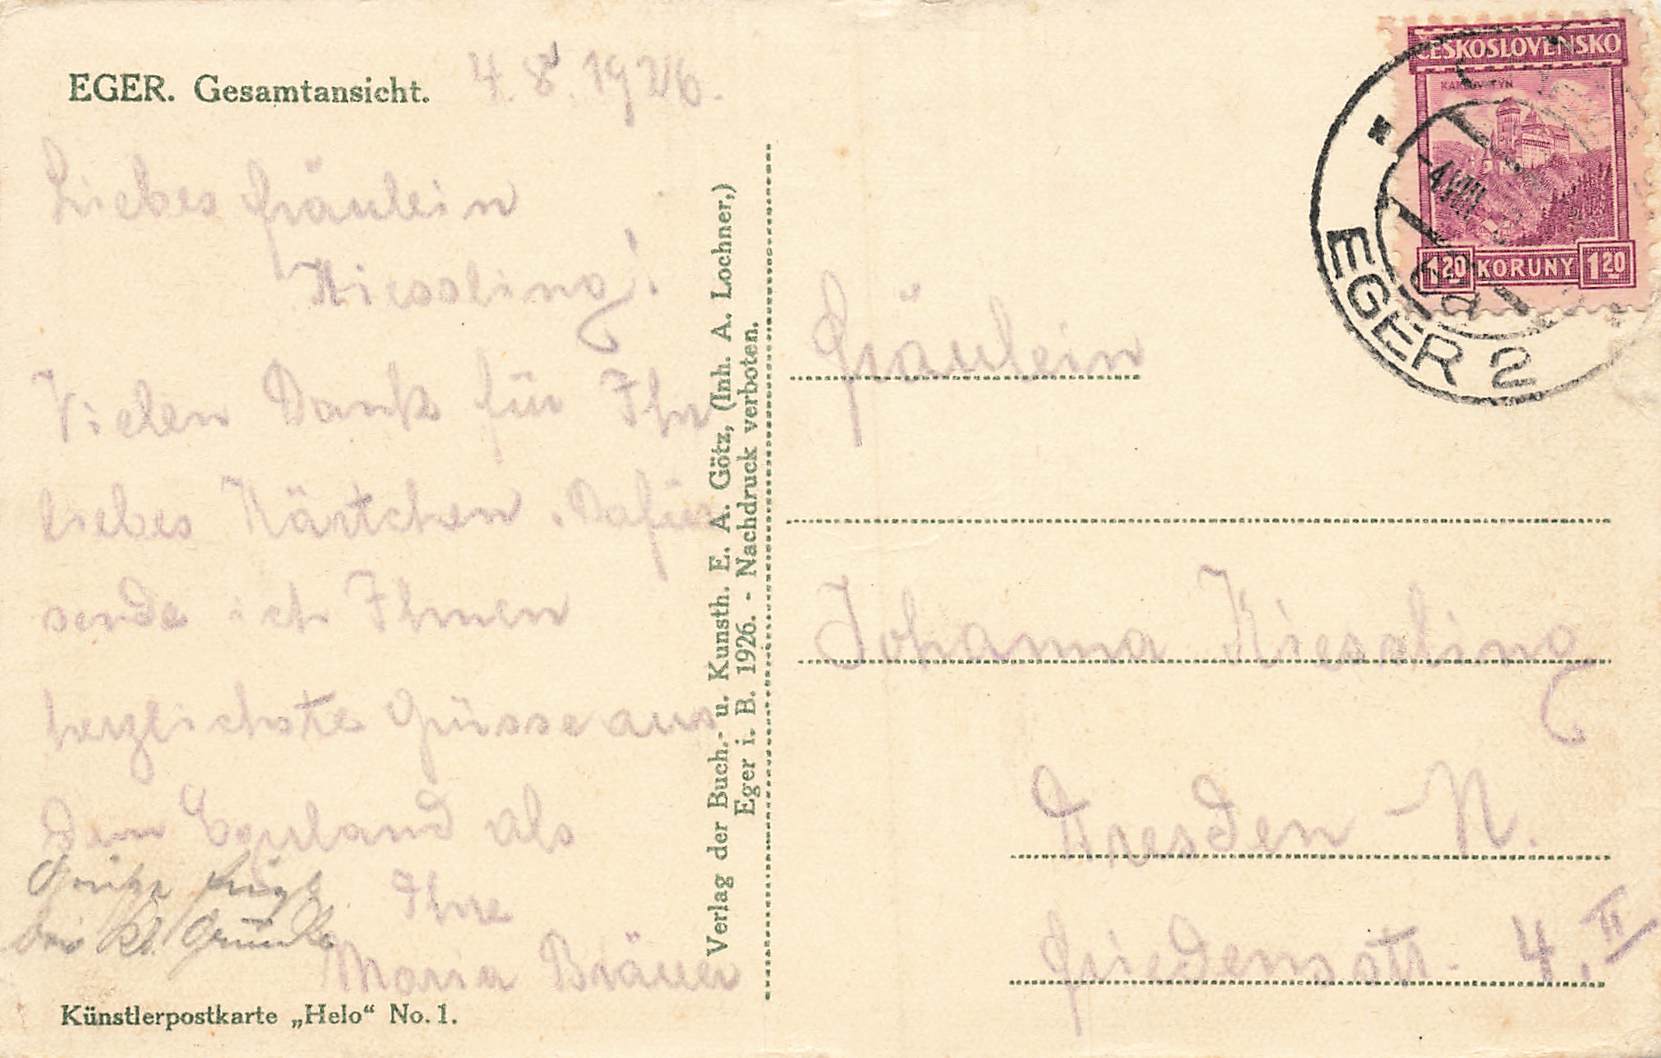 EGER. Gesamtansicht.
4.8.1926.
Liebes Fräulein
Kiessling!
Vielen Dank für Ihr
liebes Kärtchen. Dafür
sende ich Ihnen
herzlichste Grüsse aus
dem Egerland als
Ihre
Maria Bräuer
Künstlerpostkarte „Helo“ No. 1.
Verlag der Buch.- u. Kunsth. E. A. Götz, (Inh. A. Lochner,)
Eger i. B. 1926. - Nachdruck verboten.
ČESKOSLOVENSKO
KARLŮV TÝN
1.20 KORUNY 1.20
-4.VIII
6a
EGER 2
Fräulein
Johanna Kiessling
Dresden-N.
Friedensstr. 4. II